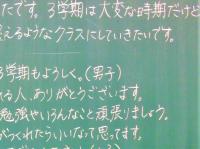 たです。3学期は大変な時期だけど
えるようなクラスにしていきたいです。
3学期もようしく。(男子)
る人、ありがとうございます。
勉強やいろんなこと頑張りましょう。
がつくれたらいいなって思ってます。